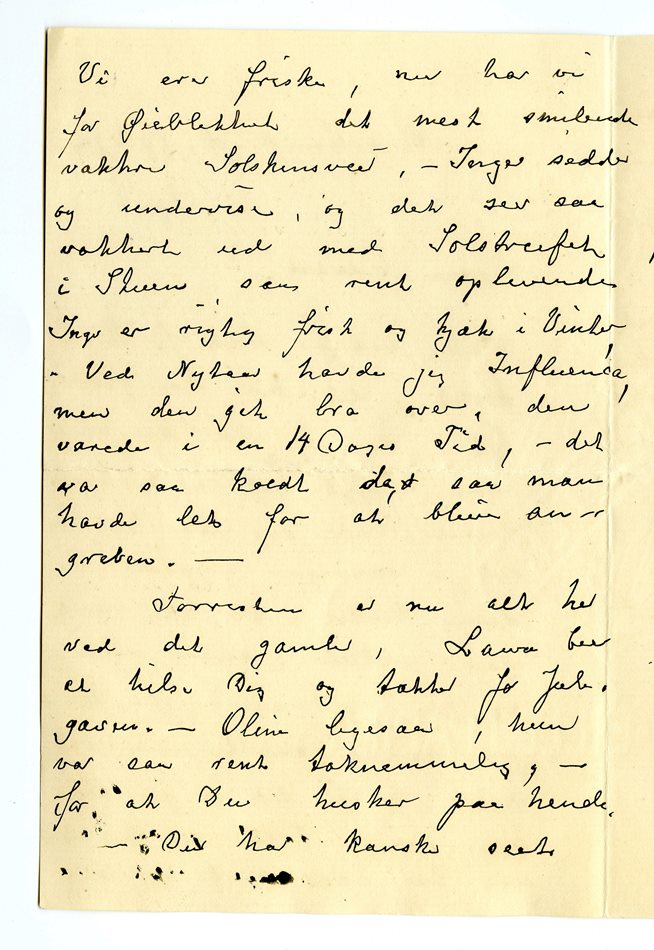 Vi ere friske, nu har vi
for Øieblikket det mest smilende
vakkre Solskinsveir, – Inger sidder
og underviser, og det ser saa
vakkert ud med Solstreifet
i Stuen saa rent oplivende
Inge er rigtig frisk og kjæk i Vinter,
– Ved Nytaar havde jeg Influenca,
men den gik bra over, den
varede i en 14 Dages Tid, – det
var saa koldt da, saa man
havde let for at blive an-
greben. —
Forresten er nu alt her
ved det gamle, Laura ber
at hilse Dig og takke for Jule-
gaven. – Oline ligesaa, hun
var saa rent taknemmelig, –
for at Du husker paa hende.
– Du har kanske seet